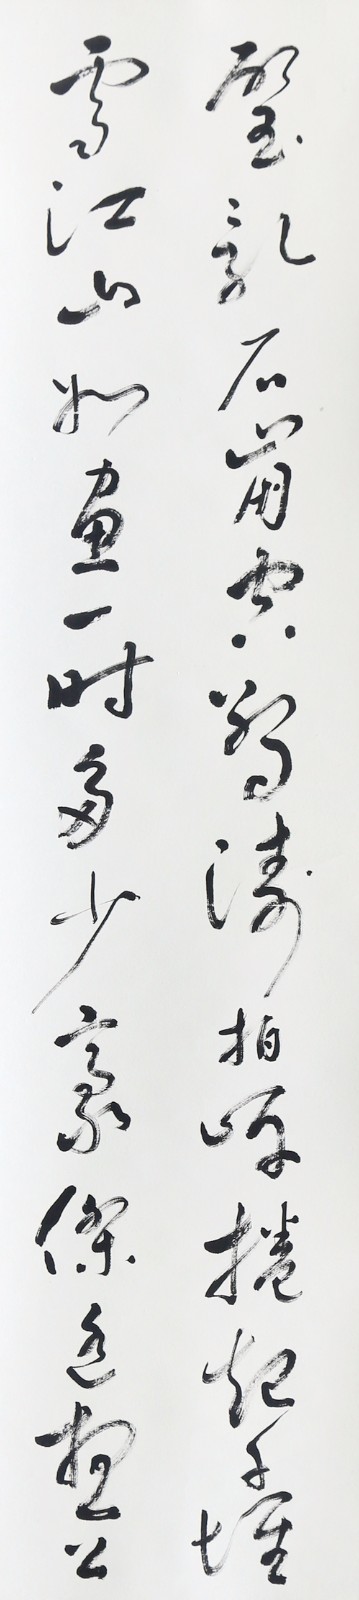 壁亂石崩雲驚濤拍岸捲起千堆
雪江山如畫一時多少豪傑遙想公